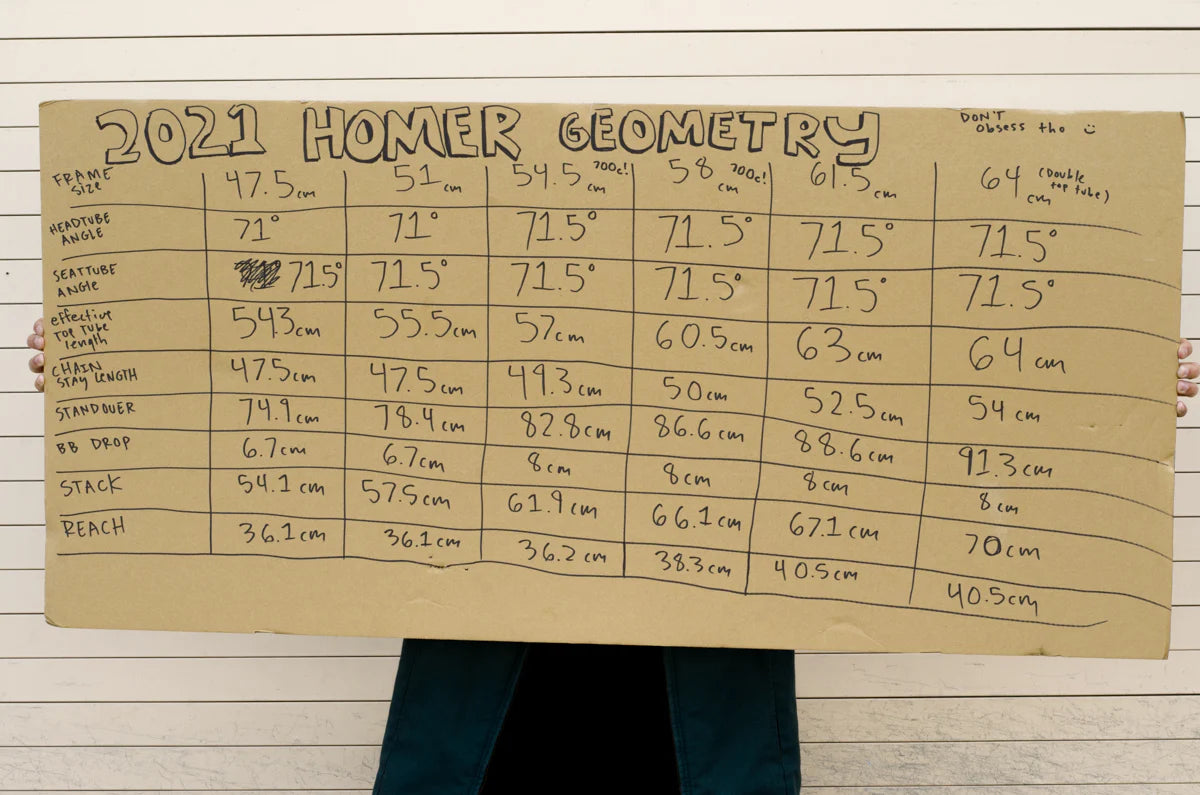 2021 HOMER GEOMETRY
DON'T
obsess tho
FRAME SIZE 47.5cm 51cm 54.5cm 700c! 58cm 700c! 61.5cm 64cm (Double top tube)
HEADTUBE ANGLE 71° 71° 71.5° 71.5° 71.5° 71.5°
SEATTUBE ANGLE 71.5° 71.5° 71.5° 71.5° 71.5° 71.5°
effective TOP TUBE length 54.3cm 55.5cm 57cm 60.5cm 63cm 64cm
CHAIN STAY LENGTH 47.5cm 47.5cm 49.3cm 50cm 52.5cm 54cm
STANDOVER 74.9cm 78.4cm 82.8cm 86.6cm 88.6cm 91.3cm
BB DROP 6.7cm 6.7cm 8cm 8cm 8cm 8cm
STACK 54.1cm 57.5cm 61.9cm 66.1cm 67.1cm 70cm
REACH 36.1cm 36.1cm 36.2cm 38.3cm 40.5cm 40.5cm